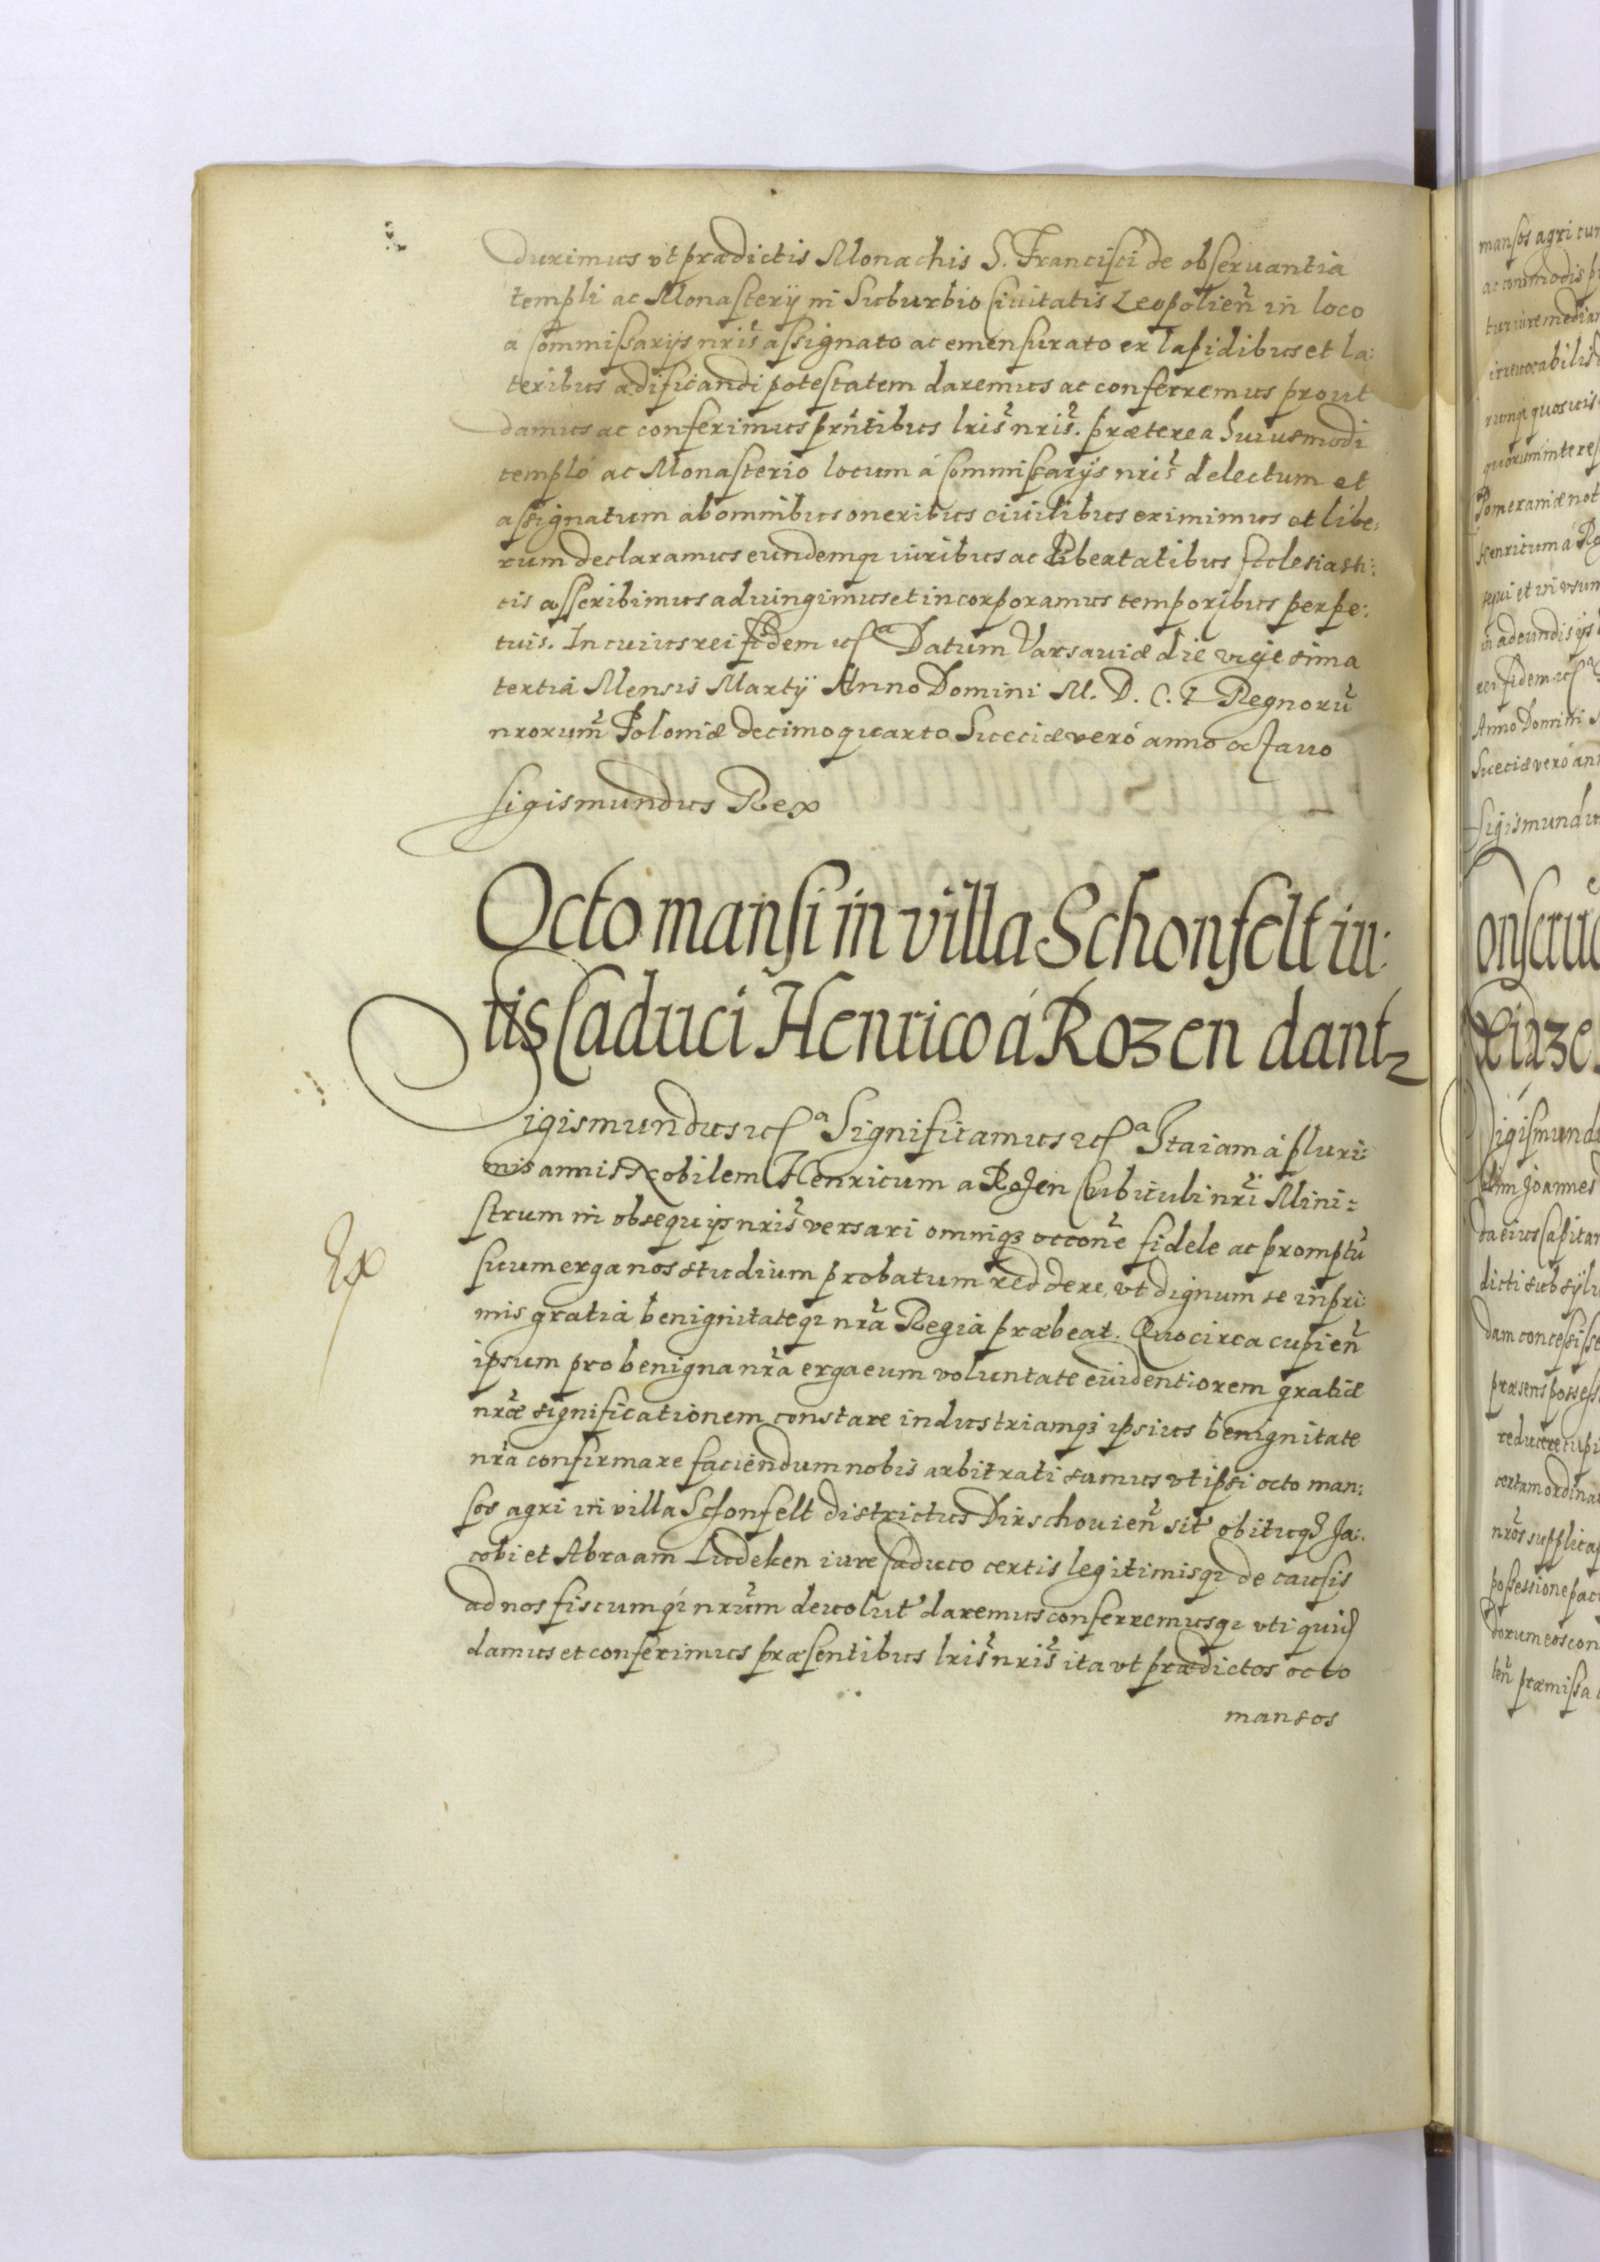 duximus vt prædictis Monachis S. Francisci de obseruantia
templi ac Monasterij in Suburbio Ciuitatis Leopolien̄ in loco
à Commissarijs nr̄is assignato ac emensurato ex lapidibus et la:
teribus ædificandi potestatem daremus ac conferremus prout
damus ac conferimus prn̄tibus lr̄is nr̄is. præterea huiusmodi
templo ac Monasterio locum à Commissarijs nr̄is delectum et
assignatum ab omnibus oneribus ciuilibus eximimus et libe:
rum declaramus eundemq; iuribus ac Libertatibus Ecclesiasti:
cis asscribimus adiungimus et incorporamus temporibus perpe:
tuis. In cuius rei fidem etc̃ᵃ Datum Varsauiæ die vigesima
tertia Mensis Martij Anno Domini M. D. C. I Regnorū
nrorum̄ Poloniæ decimoquarto Sueciæ verò anno octauo
Sigismundus Rex
Octo mansi in villa Schonfelt iu:
ris Caduci Henrico à Rozen dantz
Sigismundus etc̃ᵃ Significamus etc̃ᵃ Ita iam à pluri:
mis annis Nobilem Henricum a Rozen Cubiculi nrī Mini:
strum in obsequijs nr̄is versari omniq; occōne fidele ac promptū
suum erga nos studium probatum reddere, vt dignum se inpri:
mis gratia benignitateq; nr̄a Regia præbeat. Quocirca cupien̄
ipsum pro benigna nr̄a erga eum voluntate euidentiorem gratiæ
nr̄æ significationem constare industriamq; ipsius benignitate
nr̄a confirmare faciendum nobis arbitrati sumus vt ipsi octo man:
sos agri in villa Schonfelt districtus Dirschouien̄ sit' obituq; Ja:
cobi et Abraam Ludeken iure Caduco certis legitimisq; de causis
ad nos fiscumq; nrūm deuolut' daremus conferremusq; vti quid
damus et conferimus præsentibus lr̄is nr̄is ita vt prædictos octo
mansos
Ex